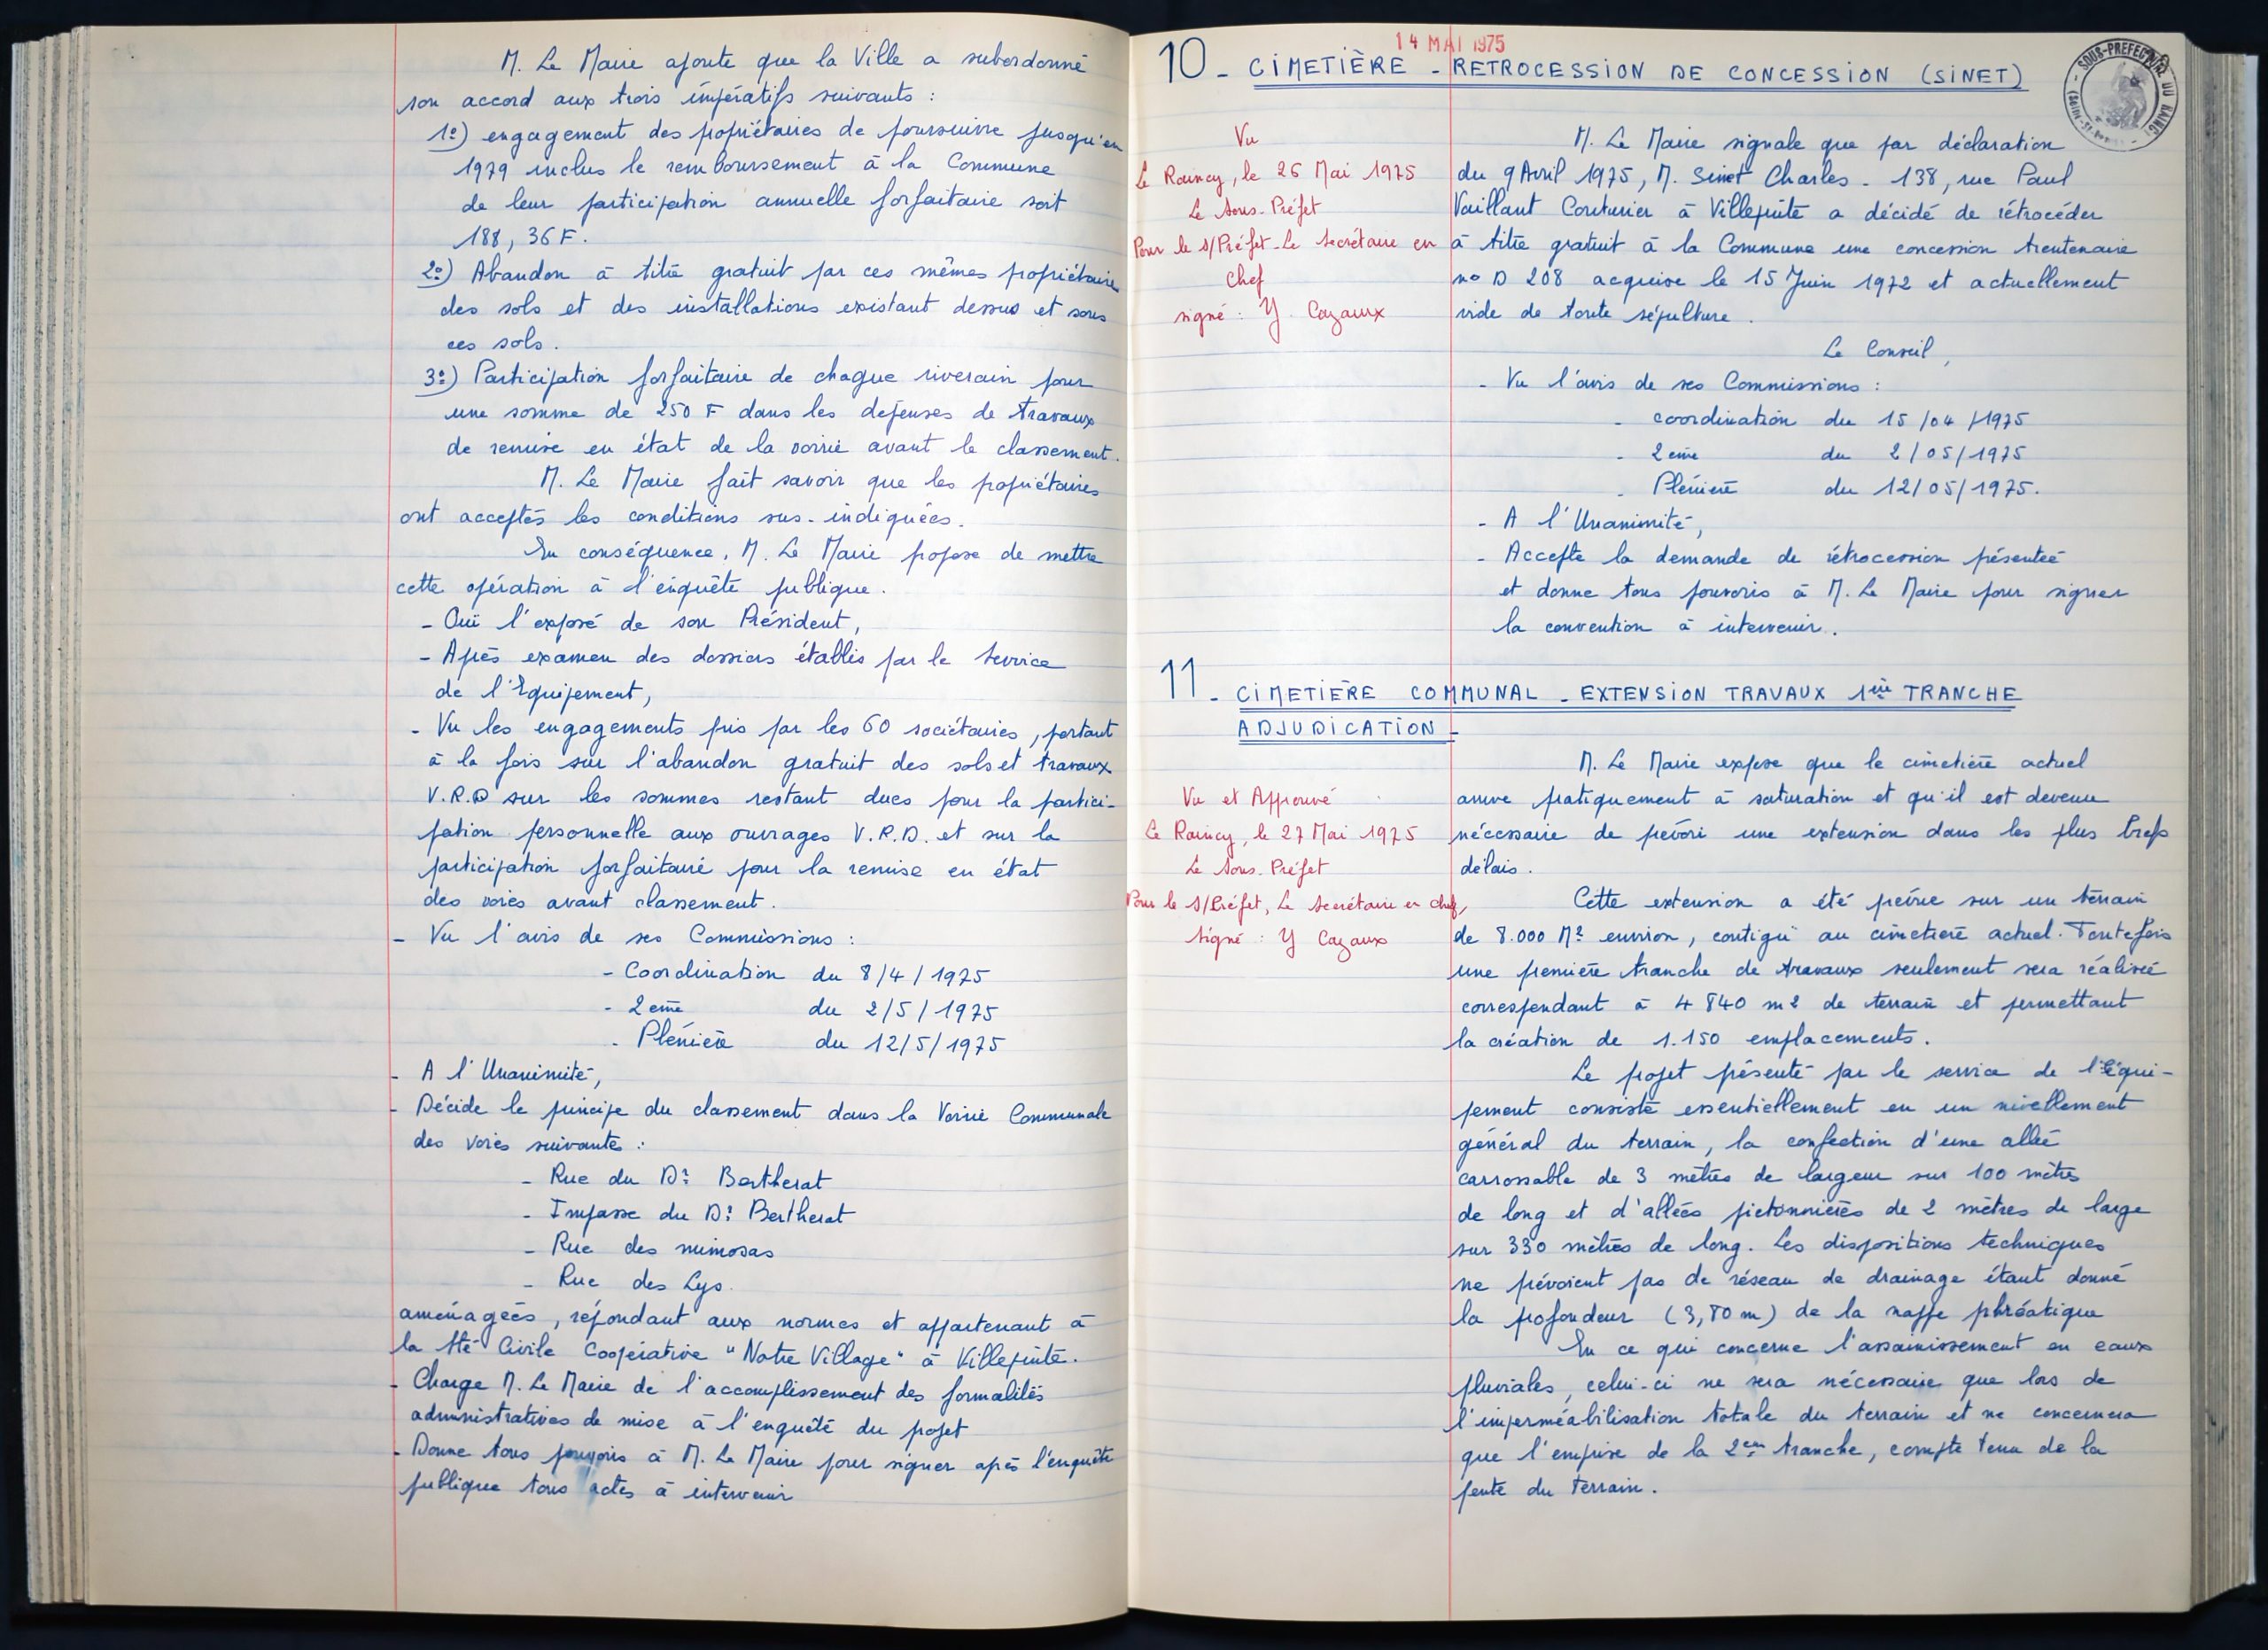 M. Le Maire ajoute que la Ville a subordonné
son accord aux trois impératifs suivants :
1º) engagement des propriétaires de poursuivre jusqu'en
1979 inclus le remboursement à la Commune
de leur participation annuelle forfaitaire soit
188,36 F.
2º) Abandon à titre gratuit par ces mêmes propriétaires
des sols et des installations existant dessus et sous
ces sols.
3º) Participation forfaitaire de chaque riverain pour
une somme de 250 F dans les dépenses de travaux
de remise en état de la voirie avant le classement.
M. Le Maire fait savoir que les propriétaires
ont acceptés les conditions sus-indiquées.
En conséquence, M. Le Maire propose de mettre
cette opération à l'enquête publique.
- Ouï l'exposé de son Président,
- Après examen des dossiers établis par le Service
de l'Equipement,
- Vu les engagements pris par les 60 sociétaires, portant
à la fois sur l'abandon gratuit des sols et travaux
V.R.D sur les sommes restant dues pour la partici-
pation personnelle aux ouvrages V.R.D. et sur la
participation forfaitaire pour la remise en état
des voies avant classement.
- Vu l'avis de ses Commissions :
- Coordination du 8/4/1975
- 2ème du 2/5/1975
- Plénière du 12/5/1975
- A l'Unanimité,
- Décide le principe du classement dans la Voirie Communale
des voies suivantes :
- Rue du Dr Bertherat
- Impasse du Dr Bertherat
- Rue des mimosas
- Rue des Lys.
aménagées, répondant aux normes et appartenant à
la Sté Civile Coopérative "Notre Village" à Villepinte.
- Charge M. Le Maire de l'accomplissement des formalités
administratives de mise à l'enquête du projet
- Donne tous pouvoirs à M. Le Maire pour signer après l'enquête
publique tous actes à intervenir
14 MAI 1975
10 - CIMETIÈRE - RETROCESSION DE CONCESSION (SINET)
SOUS-PREFECTURE DU RAINCY
Vu
Le Raincy, le 26 Mai 1975
Le Sous-Préfet
Pour le S/Préfet-Le Secrétaire en
Chef
signé : Y. Cazaux
M. Le Maire signale que par déclaration
du 9 Avril 1975, M. Sinet Charles - 138, rue Paul
Vaillant Couturier à Villepinte a décidé de rétrocéder
à titre gratuit à la Commune une concession trentenaire
no D 208 acquise le 15 Juin 1972 et actuellement
vide de toute sépulture.
Le Conseil,
- Vu l'avis de ses Commissions :
- coordination du 15/04/1975
- 2ème du 2/05/1975
- Plénière du 12/05/1975.
- A l'Unanimité,
- Accepte la demande de rétrocession présentée
et donne tous pouvoirs à M. Le Maire pour signer
la convention à intervenir.
11 - CIMETIÈRE COMMUNAL - EXTENSION TRAVAUX 1ère TRANCHE
ADJUDICATION -
Vu et Approuvé
Le Raincy, le 27 Mai 1975
Le Sous-Préfet
Pour le S/Préfet, Le Secrétaire en chef,
Signé : Y Cazaux
M. Le Maire expose que le cimetière actuel
arrive pratiquement à saturation et qu'il est devenu
nécessaire de prévoir une extension dans les plus brefs
délais.
Cette extension a été prévue sur un terrain
de 8.000 M2 environ, contigu au cimetière actuel. Toutefois
une première tranche de travaux seulement sera réalisée
correspondant à 4 840 m2 de terrain et permettant
la création de 1.150 emplacements.
Le projet présenté par le service de l'équi-
pement consiste essentiellement en un nivellement
général du terrain, la confection d'une allée
carrossable de 3 mètres de largeur sur 100 mètres
de long et d'allées pietonnières de 2 mètres de large
sur 330 mètres de long. Les dispositions techniques
ne prévoient pas de réseau de drainage étant donné
la profondeur (3,80 m) de la nappe phréatique
En ce qui concerne l'assainissement en eaux
pluviales, celui-ci ne sera nécessaire que lors de
l'imperméabilisation totale du terrain et ne concernera
que l'emprise de la 2ème tranche, compte tenu de la
pente du terrain.